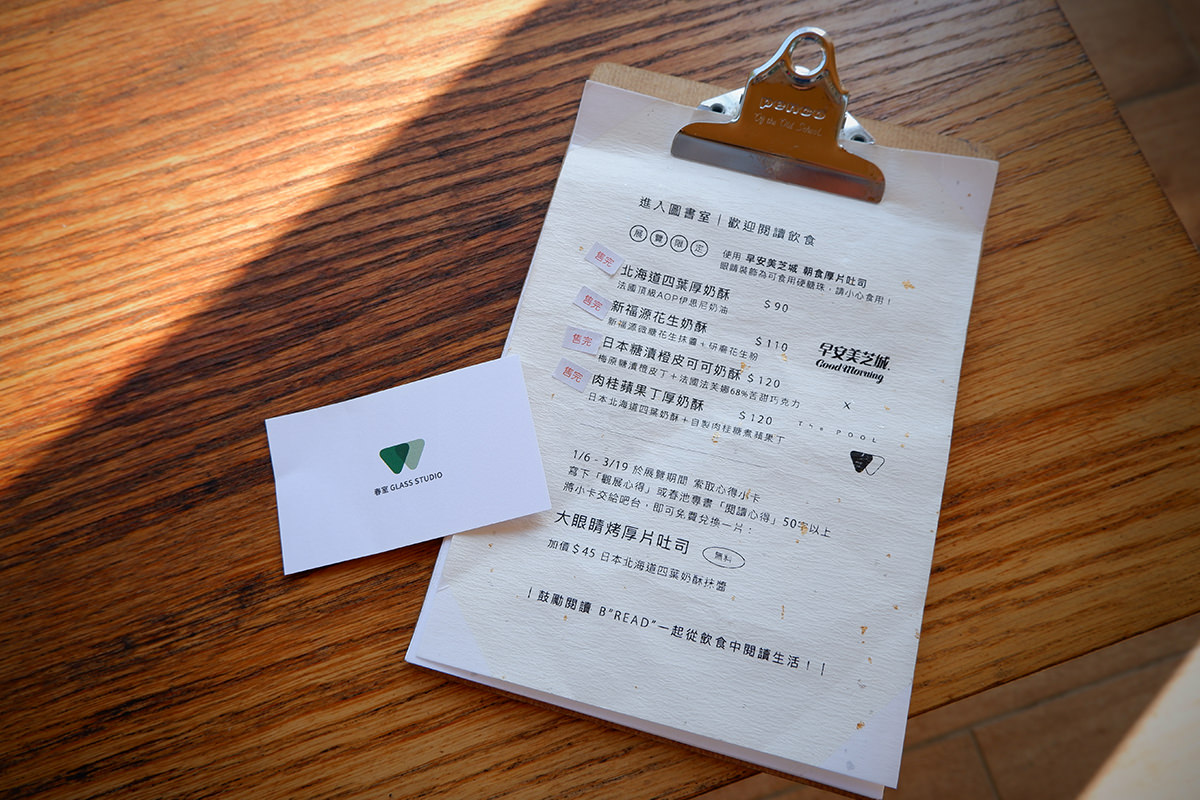 penco
By the Old School
進入圖書室｜歡迎閱讀飲食
展覽限定
使用 早安美芝城 朝食厚片吐司
眼睛裝飾為可食用硬糖珠，請小心食用！
售完
北海道四葉厚奶酥 $90
法國頂級AOP伊思尼奶油
售完
新福源花生奶酥 $110
新福源微糖花生抹醬＋研磨花生粉
售完
日本糖漬橙皮可可奶酥 $120
梅原糖漬橙皮丁＋法國法芙娜68%苦甜巧克力
售完
肉桂蘋果丁厚奶酥 $120
日本北海道四葉奶酥＋自製肉桂糖煮蘋果丁
早安美芝城
Good Morning
x
The POOL
1/6 - 3/19 於展覽期間 索取心得小卡
寫下「觀展心得」或春池專書「閱讀心得」50字以上
將小卡交給吧台，即可免費兌換一片：
大眼睛烤厚片吐司 無料
加價$45 日本北海道四葉奶酥抹醬
｜鼓勵閱讀 B"READ"一起從飲食中閱讀生活！｜
春室 GLASS STUDIO